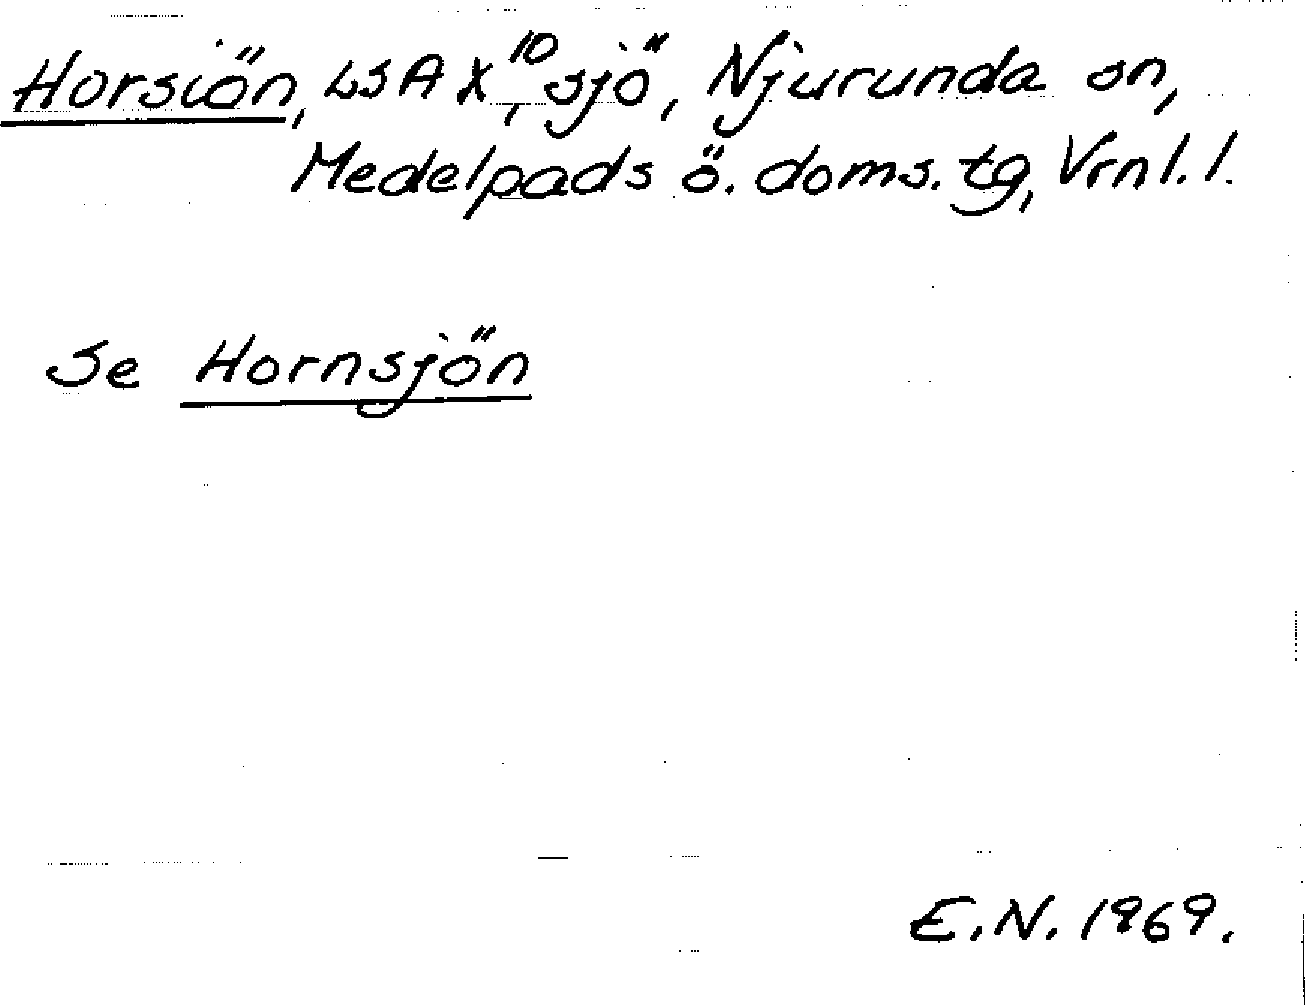 Horsiön, LSA X¹⁰, sjö, Njurunda sn,
Medelpads ö. doms. tg, Vrnl. l.
Se Hornsjön
E.N. 1969.